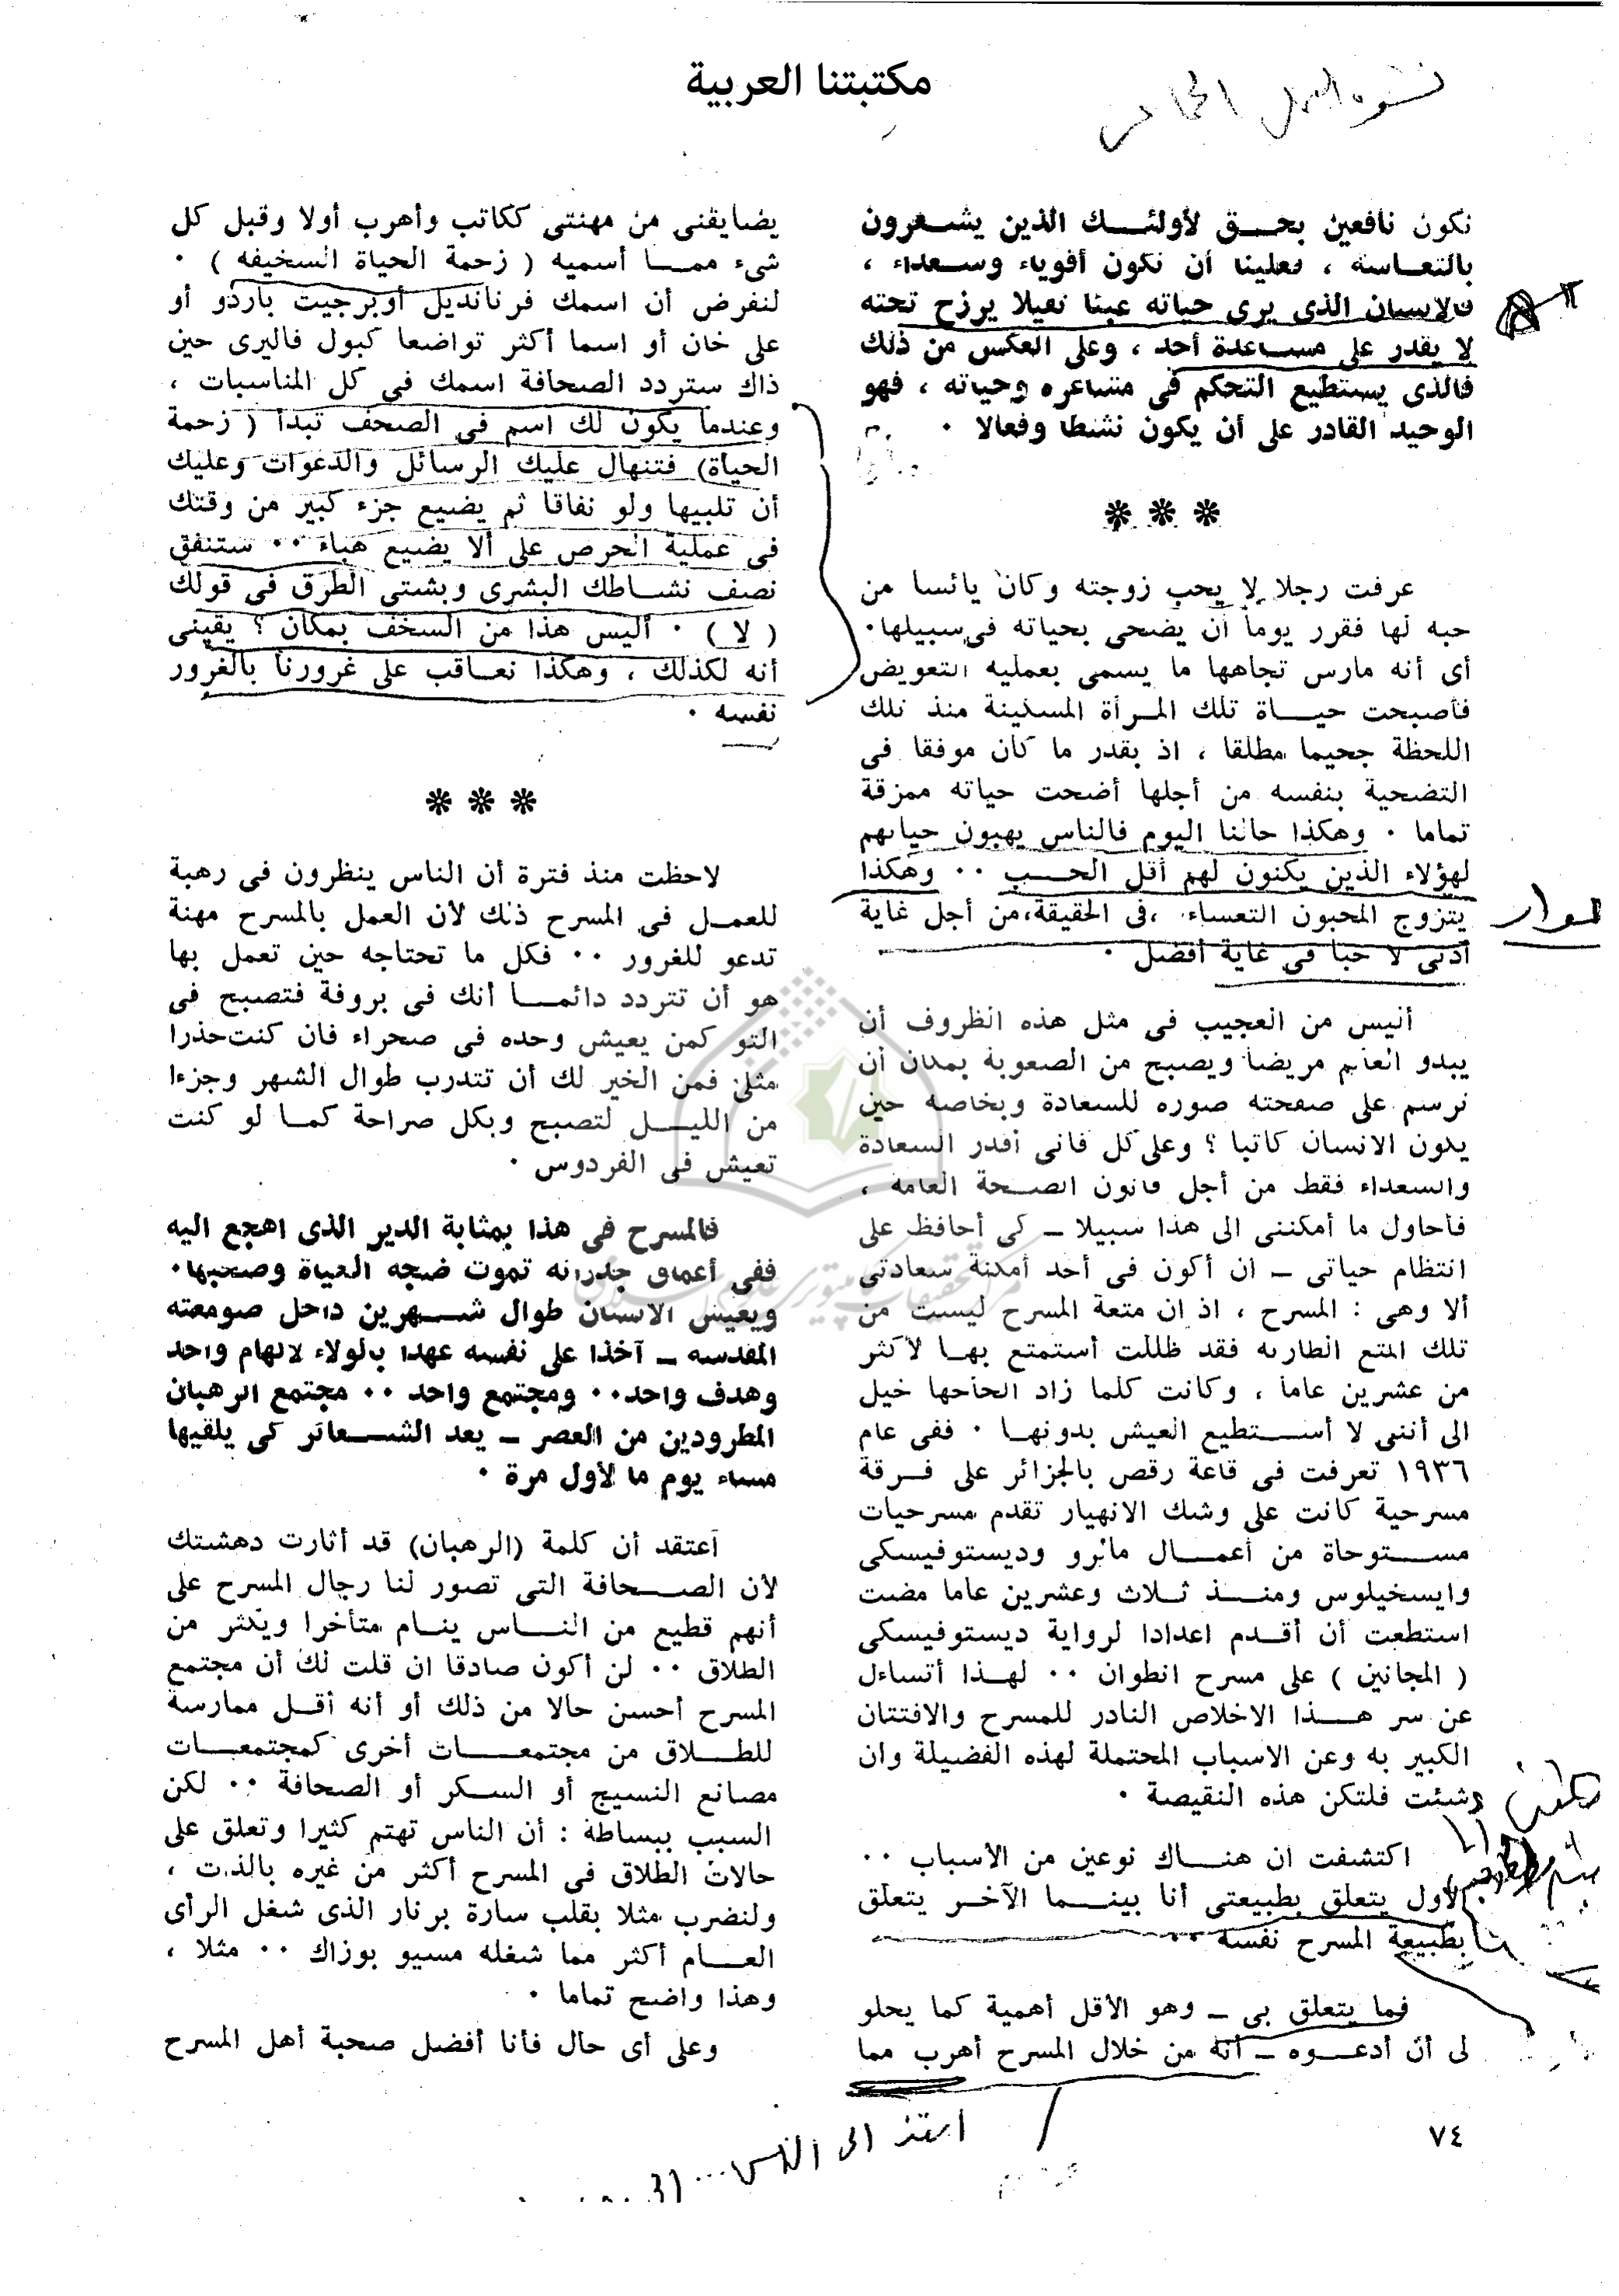 مكتبتنا العربية
نكون نافعين بحـــق لأولئـــك الذين يشـعرون
بالتعـاسه ، فعلينا أن نكون أقوياء وسـعداء ،
فالانسان الذى يرى حياته عبئا ثقيلا يرزح تحته
لا يقدر على مسـاعدة أحد ، وعلى العكس من ذلك
فالذى يستطيع التحكم فى مشاعره وحياته ، فهو
الوحيد القادر على أن يكون نشطا وفعالا ٠
❊ ❊ ❊
عرفت رجلا لا يحب زوجته وكان يائسا من
حبه لها فقرر يوما أن يضحى بحياته فى سبيلها٠
أى أنه مارس تجاهها ما يسمى بعمليه التعويض
فأصبحت حيــاة تلك المـرأة المسكينة منذ تلك
اللحظة جحيما مطلقا ، اذ بقدر ما كان موفقا فى
التضحية بنفسه من أجلها أضحت حياته ممزقة
تماما ٠ وهكذا حالنا اليوم فالناس يهبون حياتهم
لهؤلاء الذين يكنون لهم أقل الحــب ٠٠ وهكذا
يتزوج المحبون التعساء، ،فى الحقيقة،من أجل غاية
أدنى لا حبا فى غاية أفضل ٠
أليس من العجيب فى مثل هذه الظروف أن
يبدو العالم مريضا ويصبح من الصعوبة بمكان أن
نرسم على صفحته صوره للسعادة وبخاصه حين
يكون الانسان كاتبا ؟ وعلى كل فانى أقدر السعادة
والسعداء فقط من أجل قانون الصـحة العامه ،
فأحاول ما أمكننى الى هذا سبيلا ـ كى أحافظ على
انتظام حياتى ـ ان أكون فى أحد أمكنة سعادتى
ألا وهى : المسرح ، اذ ان متعة المسرح ليست من
تلك المتع الطارئه فقد ظللت أستمتع بهـا لأكثر
من عشرين عاما ، وكانت كلما زاد الحاحها خيل
الى أننى لا أســتطيع العيش بدونهـا ٠ ففى عام
١٩٣٦ تعرفت فى قاعة رقص بالجزائر على فـرقة
مسرحية كانت على وشك الانهيار تقدم مسرحيات
مســـتوحاة من أعمــال مالرو وديستوفيسكى
وايسخيلوس ومنـــذ ثـلاث وعشرين عاما مضت
استطعت أن أقـدم اعدادا لرواية ديستوفيسكى
( المجانين ) على مسرح انطوان ٠٠ لهـذا أتساءل
عن سر هـــذا الاخلاص النادر للمسرح والافتتان
الكبير به وعن الاسباب المحتملة لهذه الفضيلة وان
شئت فلتكن هذه النقيصة ٠
اكتشفت ان هنــاك نوعين من الأسباب ٠٠
الأول يتعلق بطبيعتى أنا بينـما الآخـر يتعلق
بطبيعة المسرح نفسه ٠٠
فما يتعلق بى ـ وهو الأقل أهمية كما يحلو
لى أن أدعــوه ـ أنه من خلال المسرح أهرب مما
يضايقنى من مهنتى ككاتب وأهرب أولا وقبل كل
شىء ممــا أسميه ( زحمة الحياة السخيفه ) ٠
لنفرض أن اسمك فرنانديل أوبرجيت باردو أو
على خان أو اسما أكثر تواضعا كبول فاليرى حين
ذاك ستردد الصحافة اسمك فى كل المناسبات ،
وعندما يكون لك اسم فى الصحف تبدأ ( زحمة
الحياة) فتنهال عليك الرسائل والدعوات وعليك
أن تلبيها ولو نفاقا ثم يضيع جزء كبير من وقتك
فى عملية الحرص على ألا يضيع هباء ٠٠ ستنفق
نصف نشـاطك البشرى وبشتى الطرق فى قولك
( لا ) ٠ أليس هذا من السخف بمكان ؟ يقينى
أنه لكذلك ، وهكذا نعـاقب على غرورنا بالغرور
نفسه ٠
❊ ❊ ❊
لاحظت منذ فترة أن الناس ينظرون فى رهبة
للعمـل فى المسرح ذلك لأن العمل بالمسرح مهنة
تدعو للغرور ٠٠ فكل ما تحتاجه حين تعمل بها
هو أن تتردد دائمــا أنك فى بروفة فتصبح فى
التو كمن يعيش وحده فى صحراء فان كنت حذرا
مثلى فمن الخير لك أن تتدرب طوال الشهر وجزءا
من الليـــل لتصبح وبكل صراحة كمـا لو كنت
تعيش فى الفردوس ٠
فالمسرح فى هذا بمثابة الدير الذى اهجع اليه
ففى أعماق جدرانه تموت ضجه الحياة وصخبها٠
ويعيش الانسان طوال شـــهرين داخل صومعته
المقدسه ـ آخذا على نفسه عهدا بالولاء لالهام واحد
وهدف واحد٠٠ ومجتمع واحد ٠٠ مجتمع الرهبان
المطرودين من العصر ـ يعد الشـــعائر كى يلقيها
مساء يوم ما لأول مرة ٠
أعتقد أن كلمة (الرهبان) قد أثارت دهشتك
لأن الصـــحافة التى تصور لنا رجال المسرح على
أنهم قطيع من النـــاس ينـام متأخرا ويكثر من
الطلاق ٠٠ لن أكون صادقا ان قلت لك أن مجتمع
المسرح أحسن حالا من ذلك أو أنه أقـل ممارسة
للطــلاق من مجتمعـــات أخرى كمجتمعــات
مصانع النسيج أو السـكر أو الصحافة ٠٠ لكن
السبب ببساطة : أن الناس تهتم كثيرا وتعلق على
حالات الطلاق فى المسرح أكثر من غيره بالذات ،
ولنضرب مثلا بقلب سارة برنار الذى شغل الرأى
العـــام أكثر مما شغله مسيو بوزاك ٠٠ مثلا ،
وهذا واضح تماما ٠
وعلى أى حال فأنا أفضل صحبة أهل المسرح
٧٤